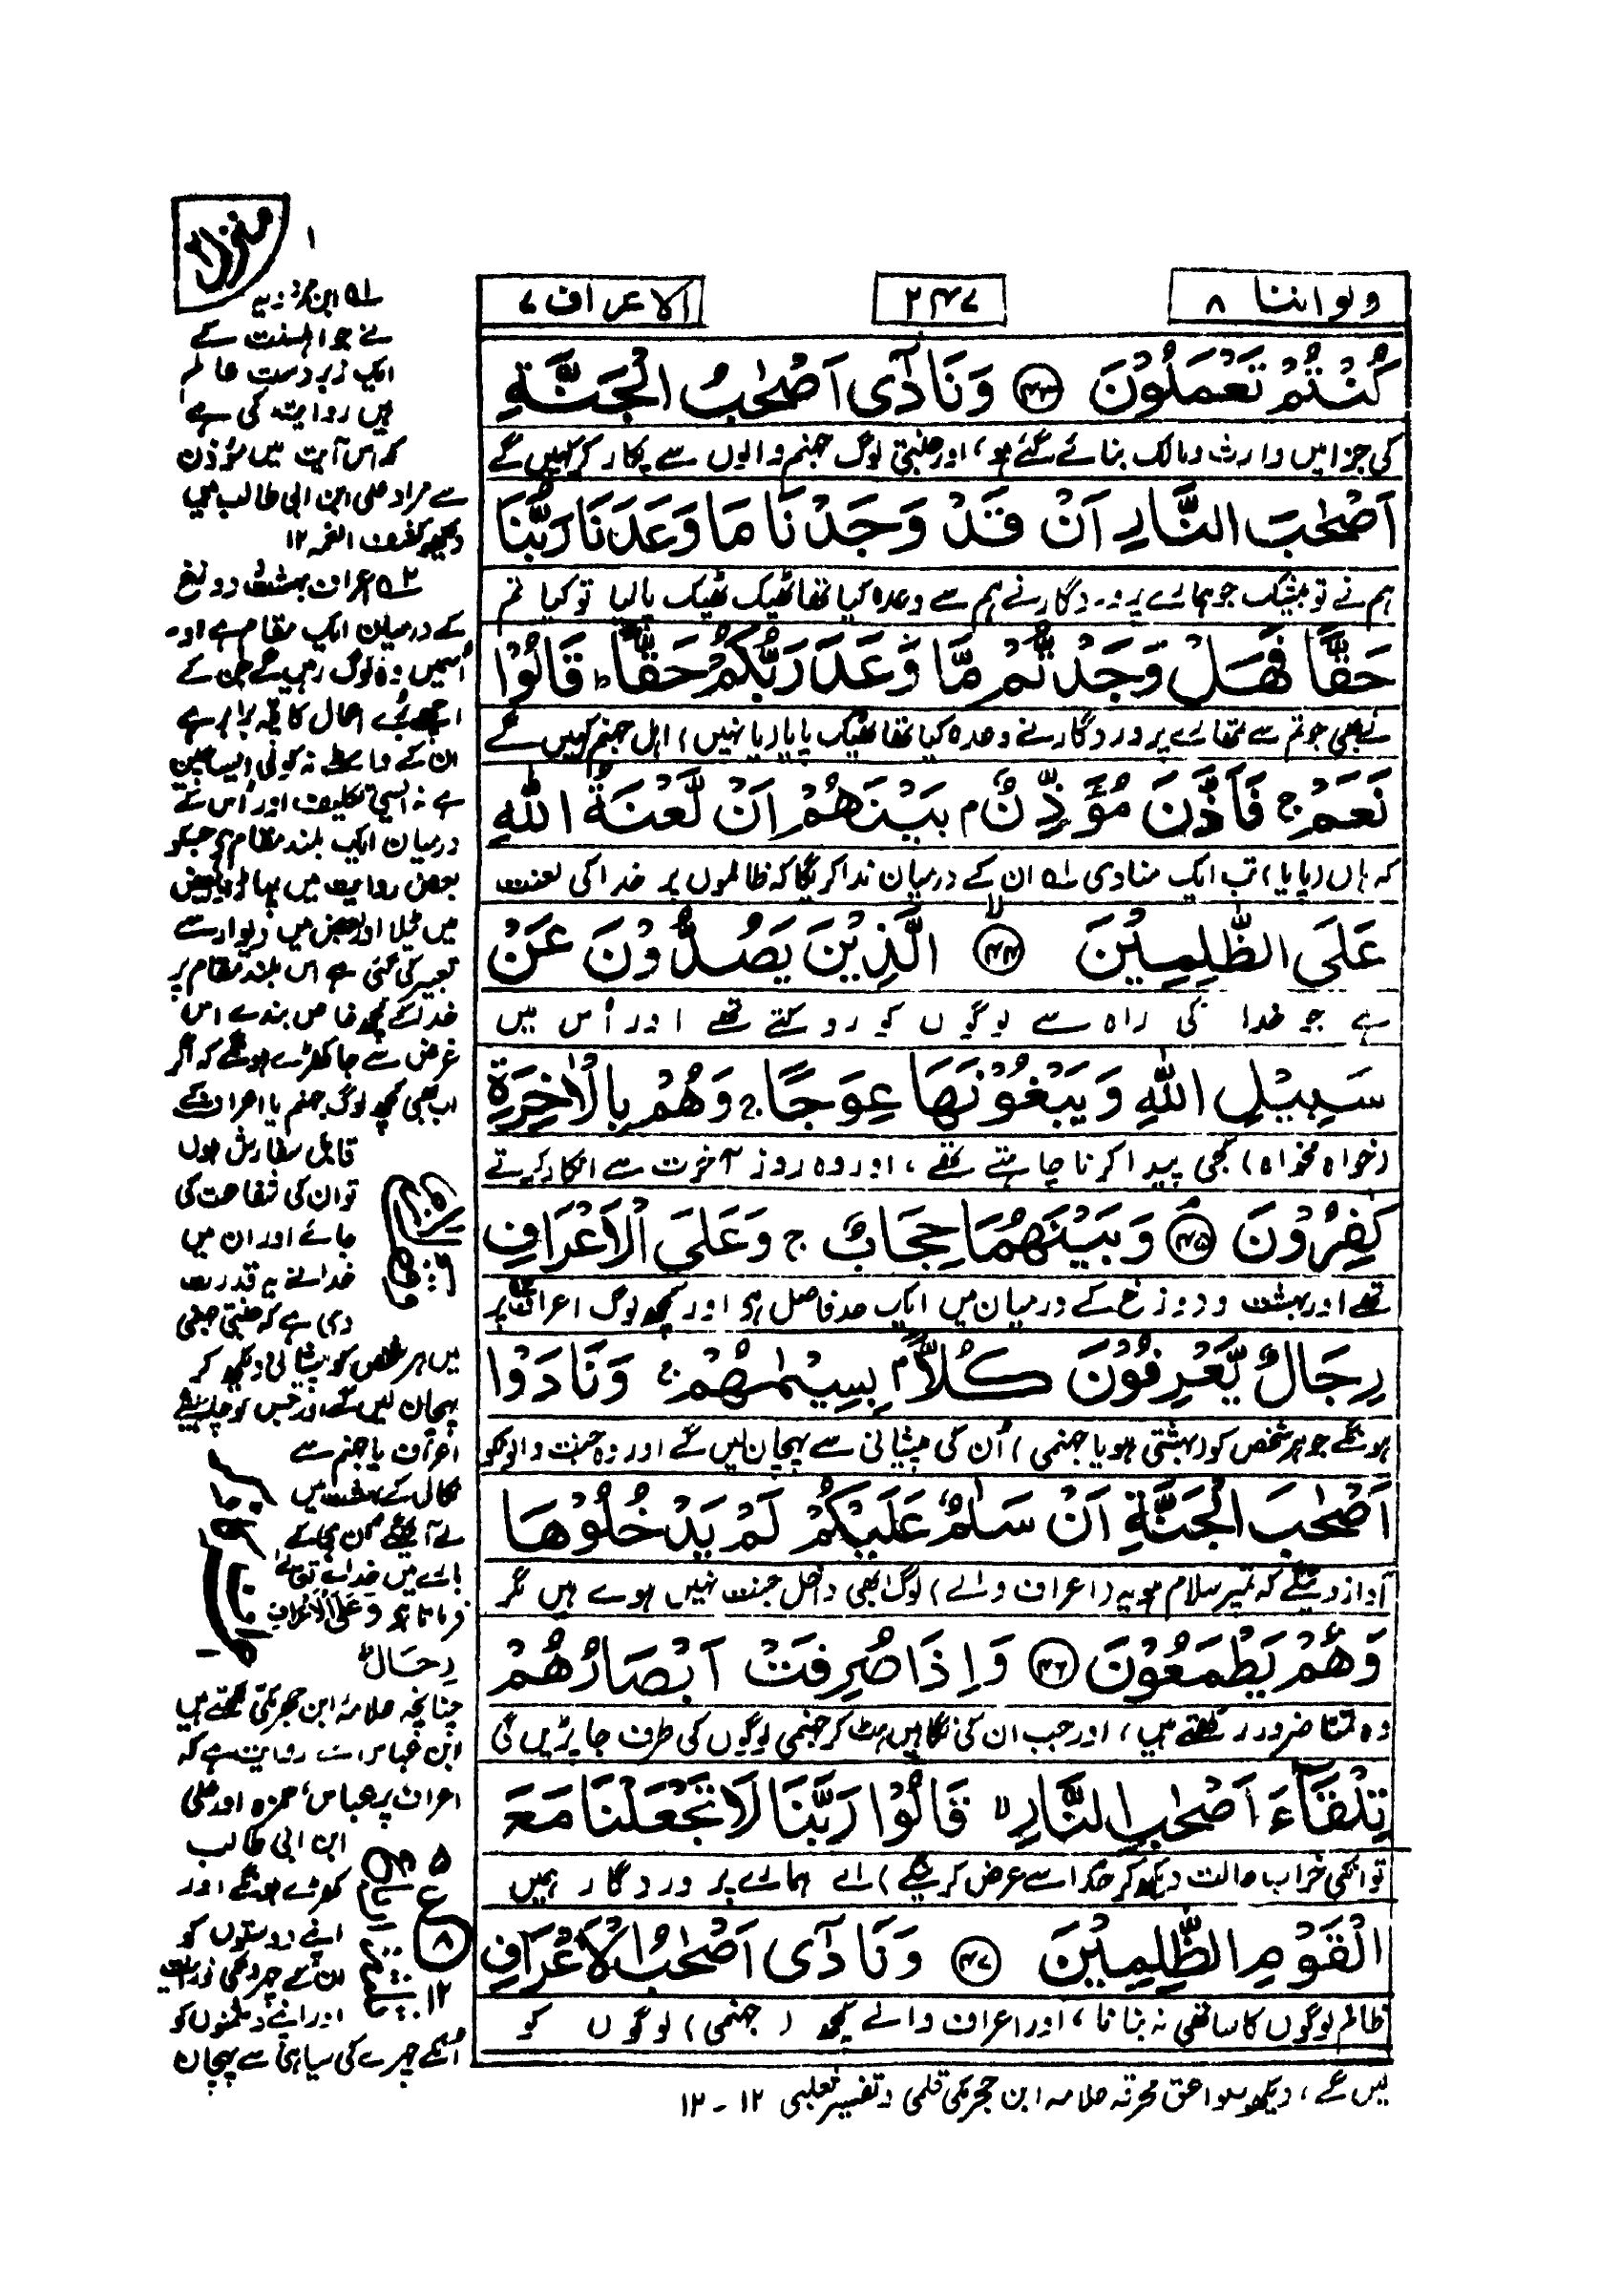 ولواننا ۸
۲۴۷
الاعراف ۷
كُنْتُمْ تَعْمَلُوْنَ ﴿۴۳﴾ وَنَادٰۤى اَصْحٰبُ الْجَنَّةِ
کی جزا میں وارث و مالک بنائے گئے ہو، اور جنتی لوگ جہنم والوں سے پکار کر کہیں گے
اَصْحٰبَ النَّارِ اَنْ قَدْ وَجَدْنَا مَا وَعَدَنَا رَبُّنَا
ہم نے تو بیشک جو ہمارے پروردگار نے ہم سے وعدہ کیا تھا ٹھیک ٹھیک پالیا تو کیا تم
حَقًّا فَهَلْ وَجَدْتُّمْ مَّا وَعَدَ رَبُّكُمْ حَقًّا ؕ قَالُوْا
نے بھی جو تم سے تمھارے پروردگار نے وعدہ کیا تھا ٹھیک پایا (یا نہیں) اہل جہنم کہیں گے
نَعَمْ ۚ فَاَذَّنَ مُؤَذِّنٌۢ بَيْنَهُمْ اَنْ لَّعْنَةُ اللّٰهِ
کہ ہاں (پایا) تب ایک منادی ؎۱ ان کے درمیان ندا کریگا کہ ظالموں پر خدا کی لعنت
عَلَى الظّٰلِمِيْنَ ﴿۴۴﴾ ۙ الَّذِيْنَ يَصُدُّوْنَ عَنْ
ہے جو خدا کی راہ سے لوگوں کو روکتے تھے اور اُس میں
سَبِيْلِ اللّٰهِ وَيَبْغُوْنَهَا عِوَجًا ۚ وَهُمْ بِالْاٰخِرَةِ
(خواہ مخواہ) کجی پیدا کرنا چاہتے تھے، اور وہ روز آخرت سے انکار کرتے
كٰفِرُوْنَ ﴿۴۵﴾ ۘ وَبَيْنَهُمَا حِجَابٌ ۚ وَعَلَى الْاَعْرَافِ
تھے اور بہشت و دوزخ کے درمیان میں ایک حد فاصل ہے اور کچھ لوگ اعراف ؎۲ پر
رِجَالٌ يَّعْرِفُوْنَ كُلًّاۢ بِسِيْمٰىهُمْ ۚ وَنَادَوْا
ہونگے جو ہر شخص کو (بہشتی ہو یا جہنمی) اُن کی پیشانی سے پہچان لیں گے اور وہ جنت والوں کو
اَصْحٰبَ الْجَنَّةِ اَنْ سَلٰمٌ عَلَيْكُمْ لَمْ يَدْخُلُوْهَا
آواز دینگے کہ تمپر سلام ہو یہ (اعراف والے) لوگ ابھی داخل جنت نہیں ہوئے ہیں مگر
وَهُمْ يَطْمَعُوْنَ ﴿۴۶﴾ وَاِذَا صُرِفَتْ اَبْصَارُهُمْ
وہ تمنا ضرور رکھتے ہیں، اور جب ان کی نگاہیں پلٹ کر جہنمی لوگوں کی طرف جا پڑیں گی
تِلْقَآءَ اَصْحٰبِ النَّارِ ۙ قَالُوْا رَبَّنَا لَا تَجْعَلْنَا مَعَ
تو انکی خراب حالت دیکھ کر خدا سے عرض کرینگے) اے ہمارے پروردگار ہمیں
الْقَوْمِ الظّٰلِمِيْنَ ﴿۴۷﴾ وَنَادٰۤى اَصْحٰبُ الْاَعْرَافِ
ظالم لوگوں کا ساتھی نہ بنانا، اور اعراف والے کچھ (جہنمی) لوگوں کو
۱
؎۱ ابن مردویہ
نے جو اہلسنت کے
ایک زبردست عالم
ہیں روایت کی ہے
کہ اس آیت میں مؤذن
سے مراد علی ابن ابی طالب ہیں
دیکھو کشف الغمہ ۱۲
؎۲ اعراف بہشت و دوزخ
کے درمیان ایک مقام ہے اور
اُسمیں وہ لوگ رہیں گے جن کے
اچھے بُرے اعمال کا پلہ برابر ہے
ان کے واسطے نہ کوئی ایسا چین
ہے نہ ایسی تکلیف اور اُس کے
درمیان ایک بلند مقام ہے جسکو
بعض روایت میں پہاڑ اور بعض
میں ٹیلا اور بعض میں دیوار سے
تعبیر کی گئی ہے اس بلند مقام پر
خدا کے کچھ خاص بندے اس
غرض سے جا کھڑے ہونگے کہ اگر
اب بھی کچھ لوگ جہنم یا اعراف کے
قابل سفارش ہوں
تو ان کی شفاعت کی
جائے اور ان میں
خدا نے یہ قدرت
دی ہے کہ جنتی جہنمی
میں ہر شخص کو پیشانی دیکھ کر
پہچان لیں گے اور جس کو چاہینگے
اعراف یا جہنم سے
نکال کے بہشت میں
لے آئینگے جن کے
بارے میں خداے تعالیٰ
فرماتا ہے وَعَلَى الْاَعْرَافِ
رِجَالٌ
چنانچہ علامہ ابن حجر مکی لکھتے ہیں
ابن عباس سے روایت ہے کہ
اعراف پر عباس، حمزہ اور علی
ابن ابی طالب
کھڑے ہونگے اور
اپنے دوستوں کو
ان کے چہرے کی نورانیت
اور اپنے دشمنوں کو
اُنکے چہرے کی سیاہی سے پہچان
ع
۸
۱۲
لیں گے، دیکھو صواعق محرقہ علامہ ابن حجر مکی قلمی و تفسیر ثعلبی ۱۲ - ۱۲